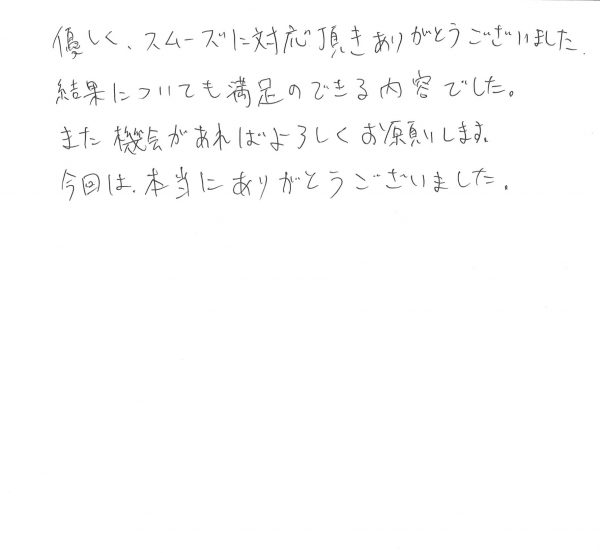 優しく、スムーズに対応頂きありがとうございました.
結果についても満足のできる内容でした。
また機会があればよろしくお願いします。
今回は、本当にありがとうございました。